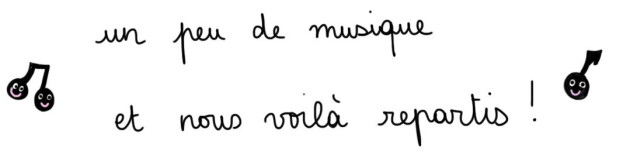 un peu de musique
et nous voilà repartis !